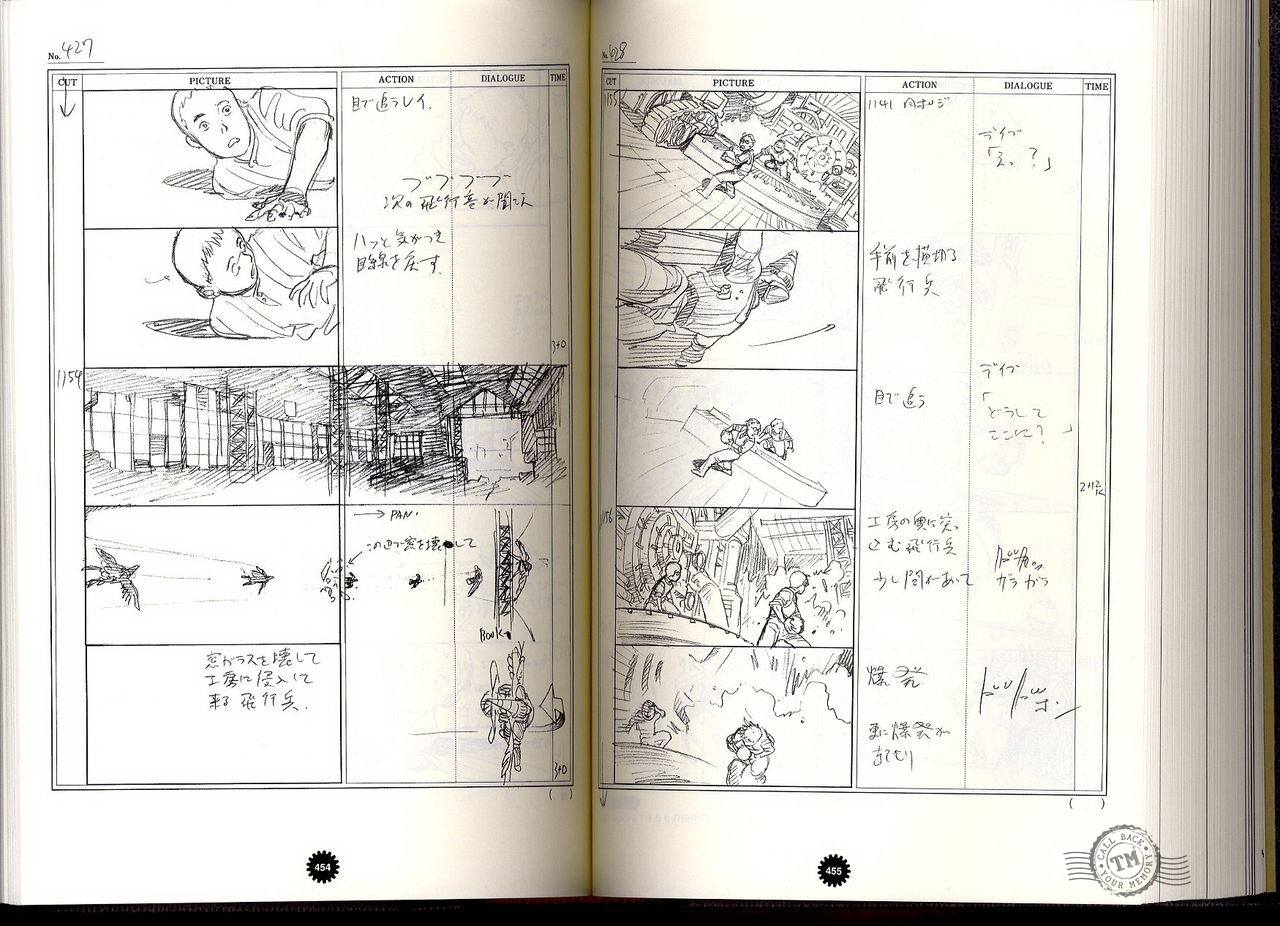 No. 427
CUT PICTURE ACTION DIALOGUE TIME
目で追うレイ.
ブブブブ
次の飛行兵が聞え
ハッと気がつき
目線を戻す.
3+0
1154
→ PAN.
この辺で窓を壊して
BOOK
窓ガラスを壊して
工房に侵入して
来る飛行兵.
3+0
( )
454
No. 428
CUT PICTURE ACTION DIALOGUE TIME
1155
1141 同ポジ
デイブ
「えっ?」
手前を横切る
飛行兵
目で追う
デイブ
「どうして
ここに?」
2+12
1156
工房の奥に突っ
込む飛行兵
少し間があって
ガラガラ
爆発
更に爆発が
( )
455
CALL BACK
TM
YOUR MEMORY